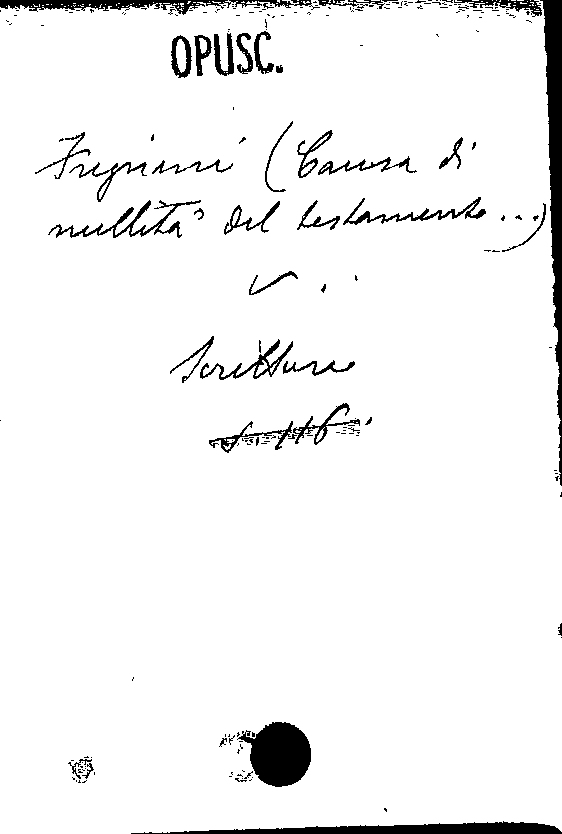 OPUSC.
Fregiani (Causa di
nullità del testamento...)
v.
Scritture
S. 116.